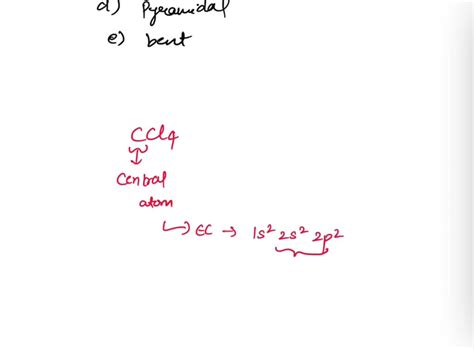 d) Pyramidal
e) bent
CCl4
Central
atom
↳ EC → 1s² 2s² 2p²